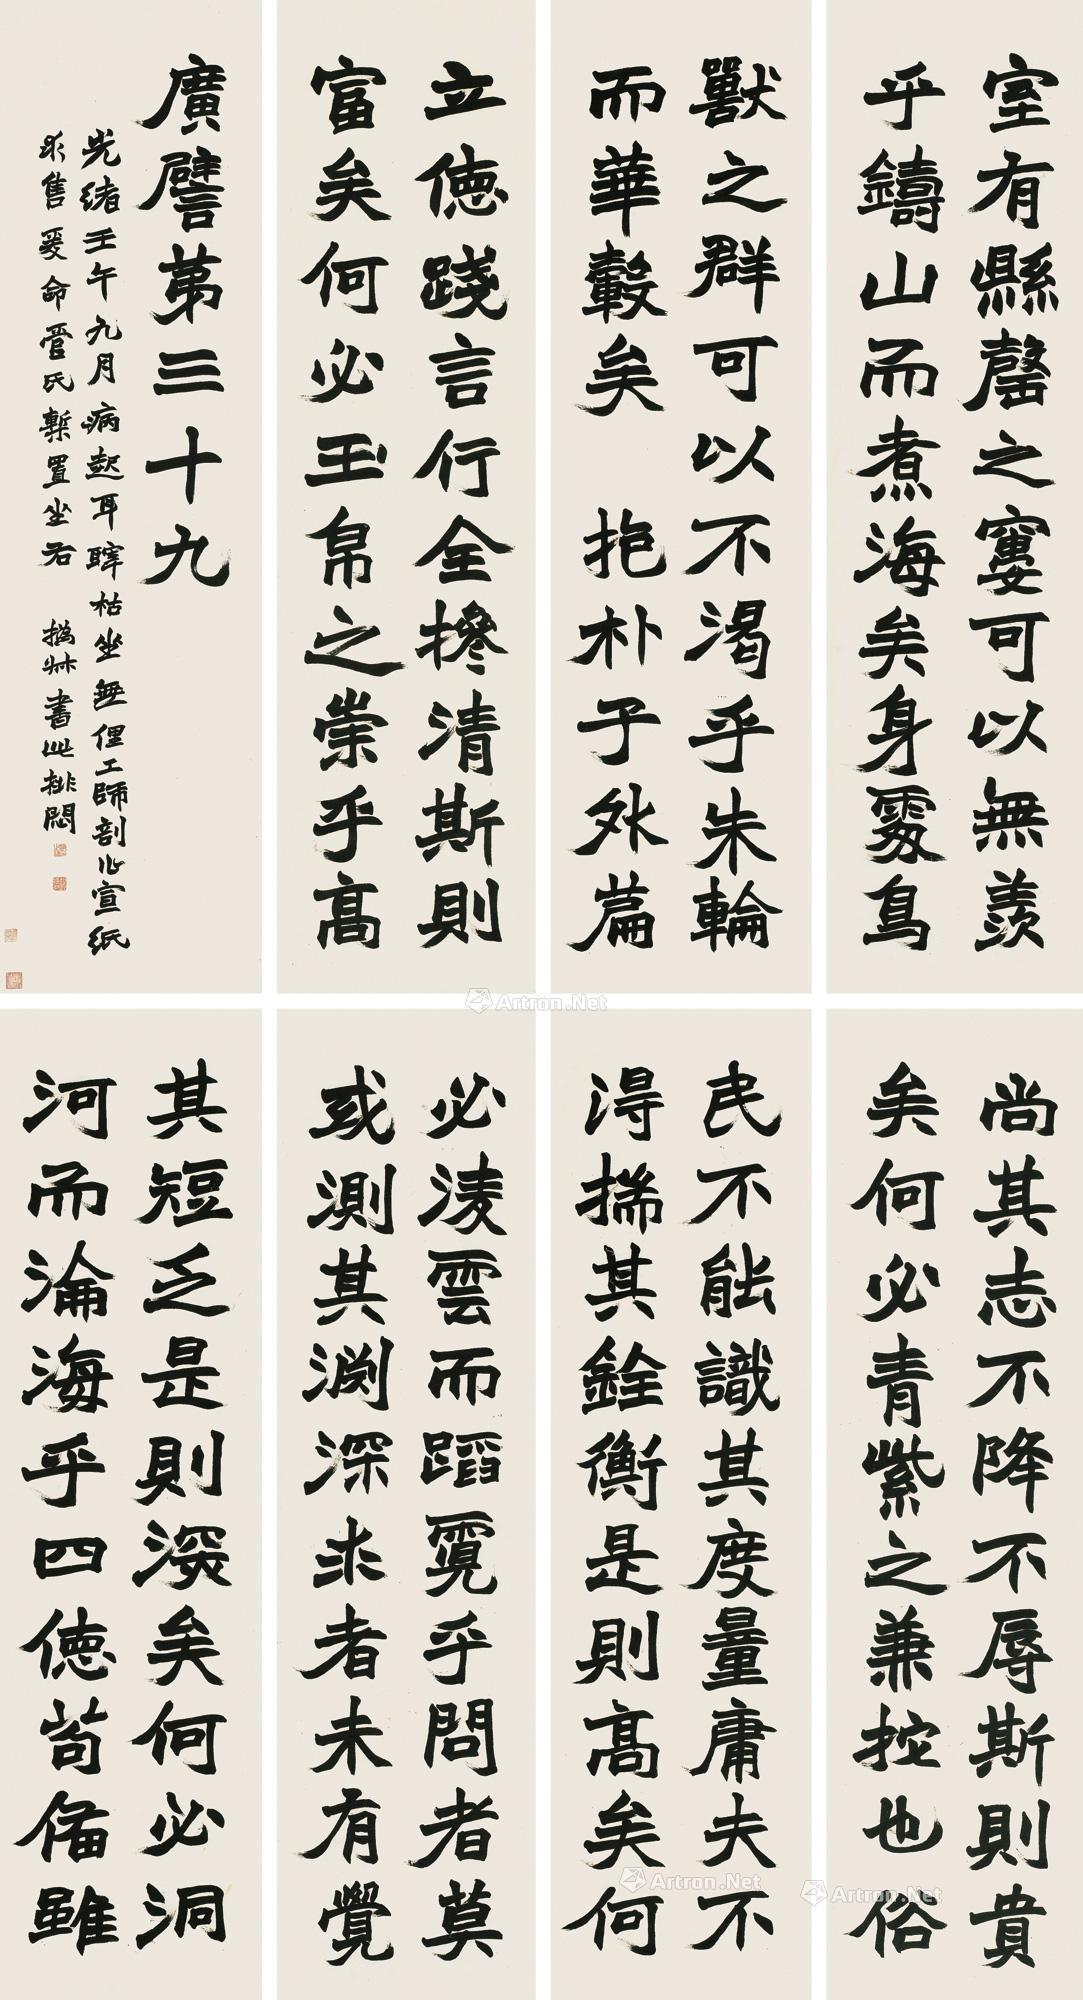 立德踐言行全操清斯則
富矣何必玉帛之崇乎高
尚其志不降不辱斯則貴
矣何必青紫之兼拕也俗
民不能識其度量庸夫不
得揣其銓衡是則高矣何
必淩雲而蹈霓乎問者莫
或測其淵深求者未有覺
其短乏是則深矣何必洞
河而淪海乎四德苟備雖
室有縣磬之窶可以無羨
乎鑄山而煮海矣身處鳥
獸之群可以不渴乎朱輪
而華轂矣 抱朴子外篇
廣譬第三十九
光緒壬午九月病起耳聹枯坐無俚工師剖心宣紙
求售爰命管氏槧置坐右 撝叔書此排悶
Artron.Net
Artron.Net
Artron.Net